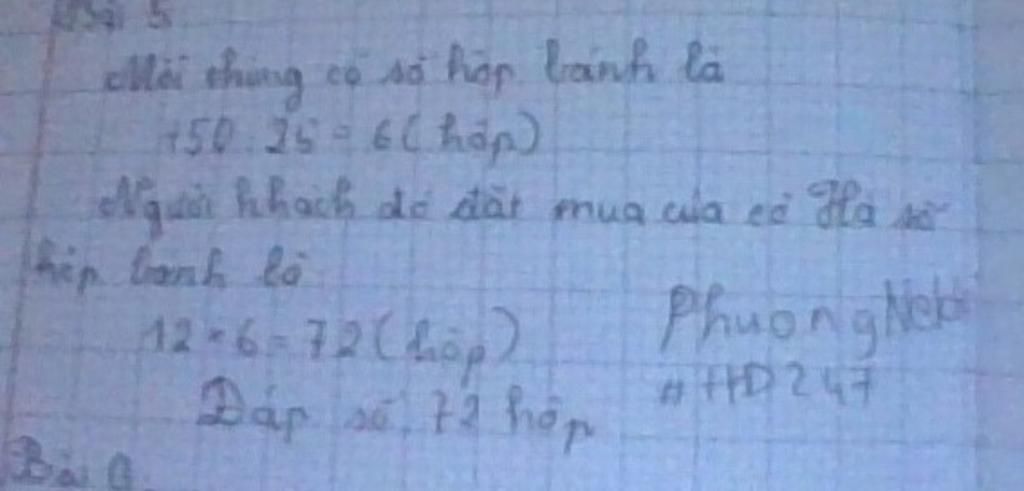 Bài 5
Mỗi thùng có số hộp bánh là
150 : 25 = 6 ( hộp )
Người khách đó đặt mua của cô Hà số
hộp bánh là
12 × 6 = 72 ( hộp )
Đáp số : 72 hộp
Phuong
# HD247
Bài